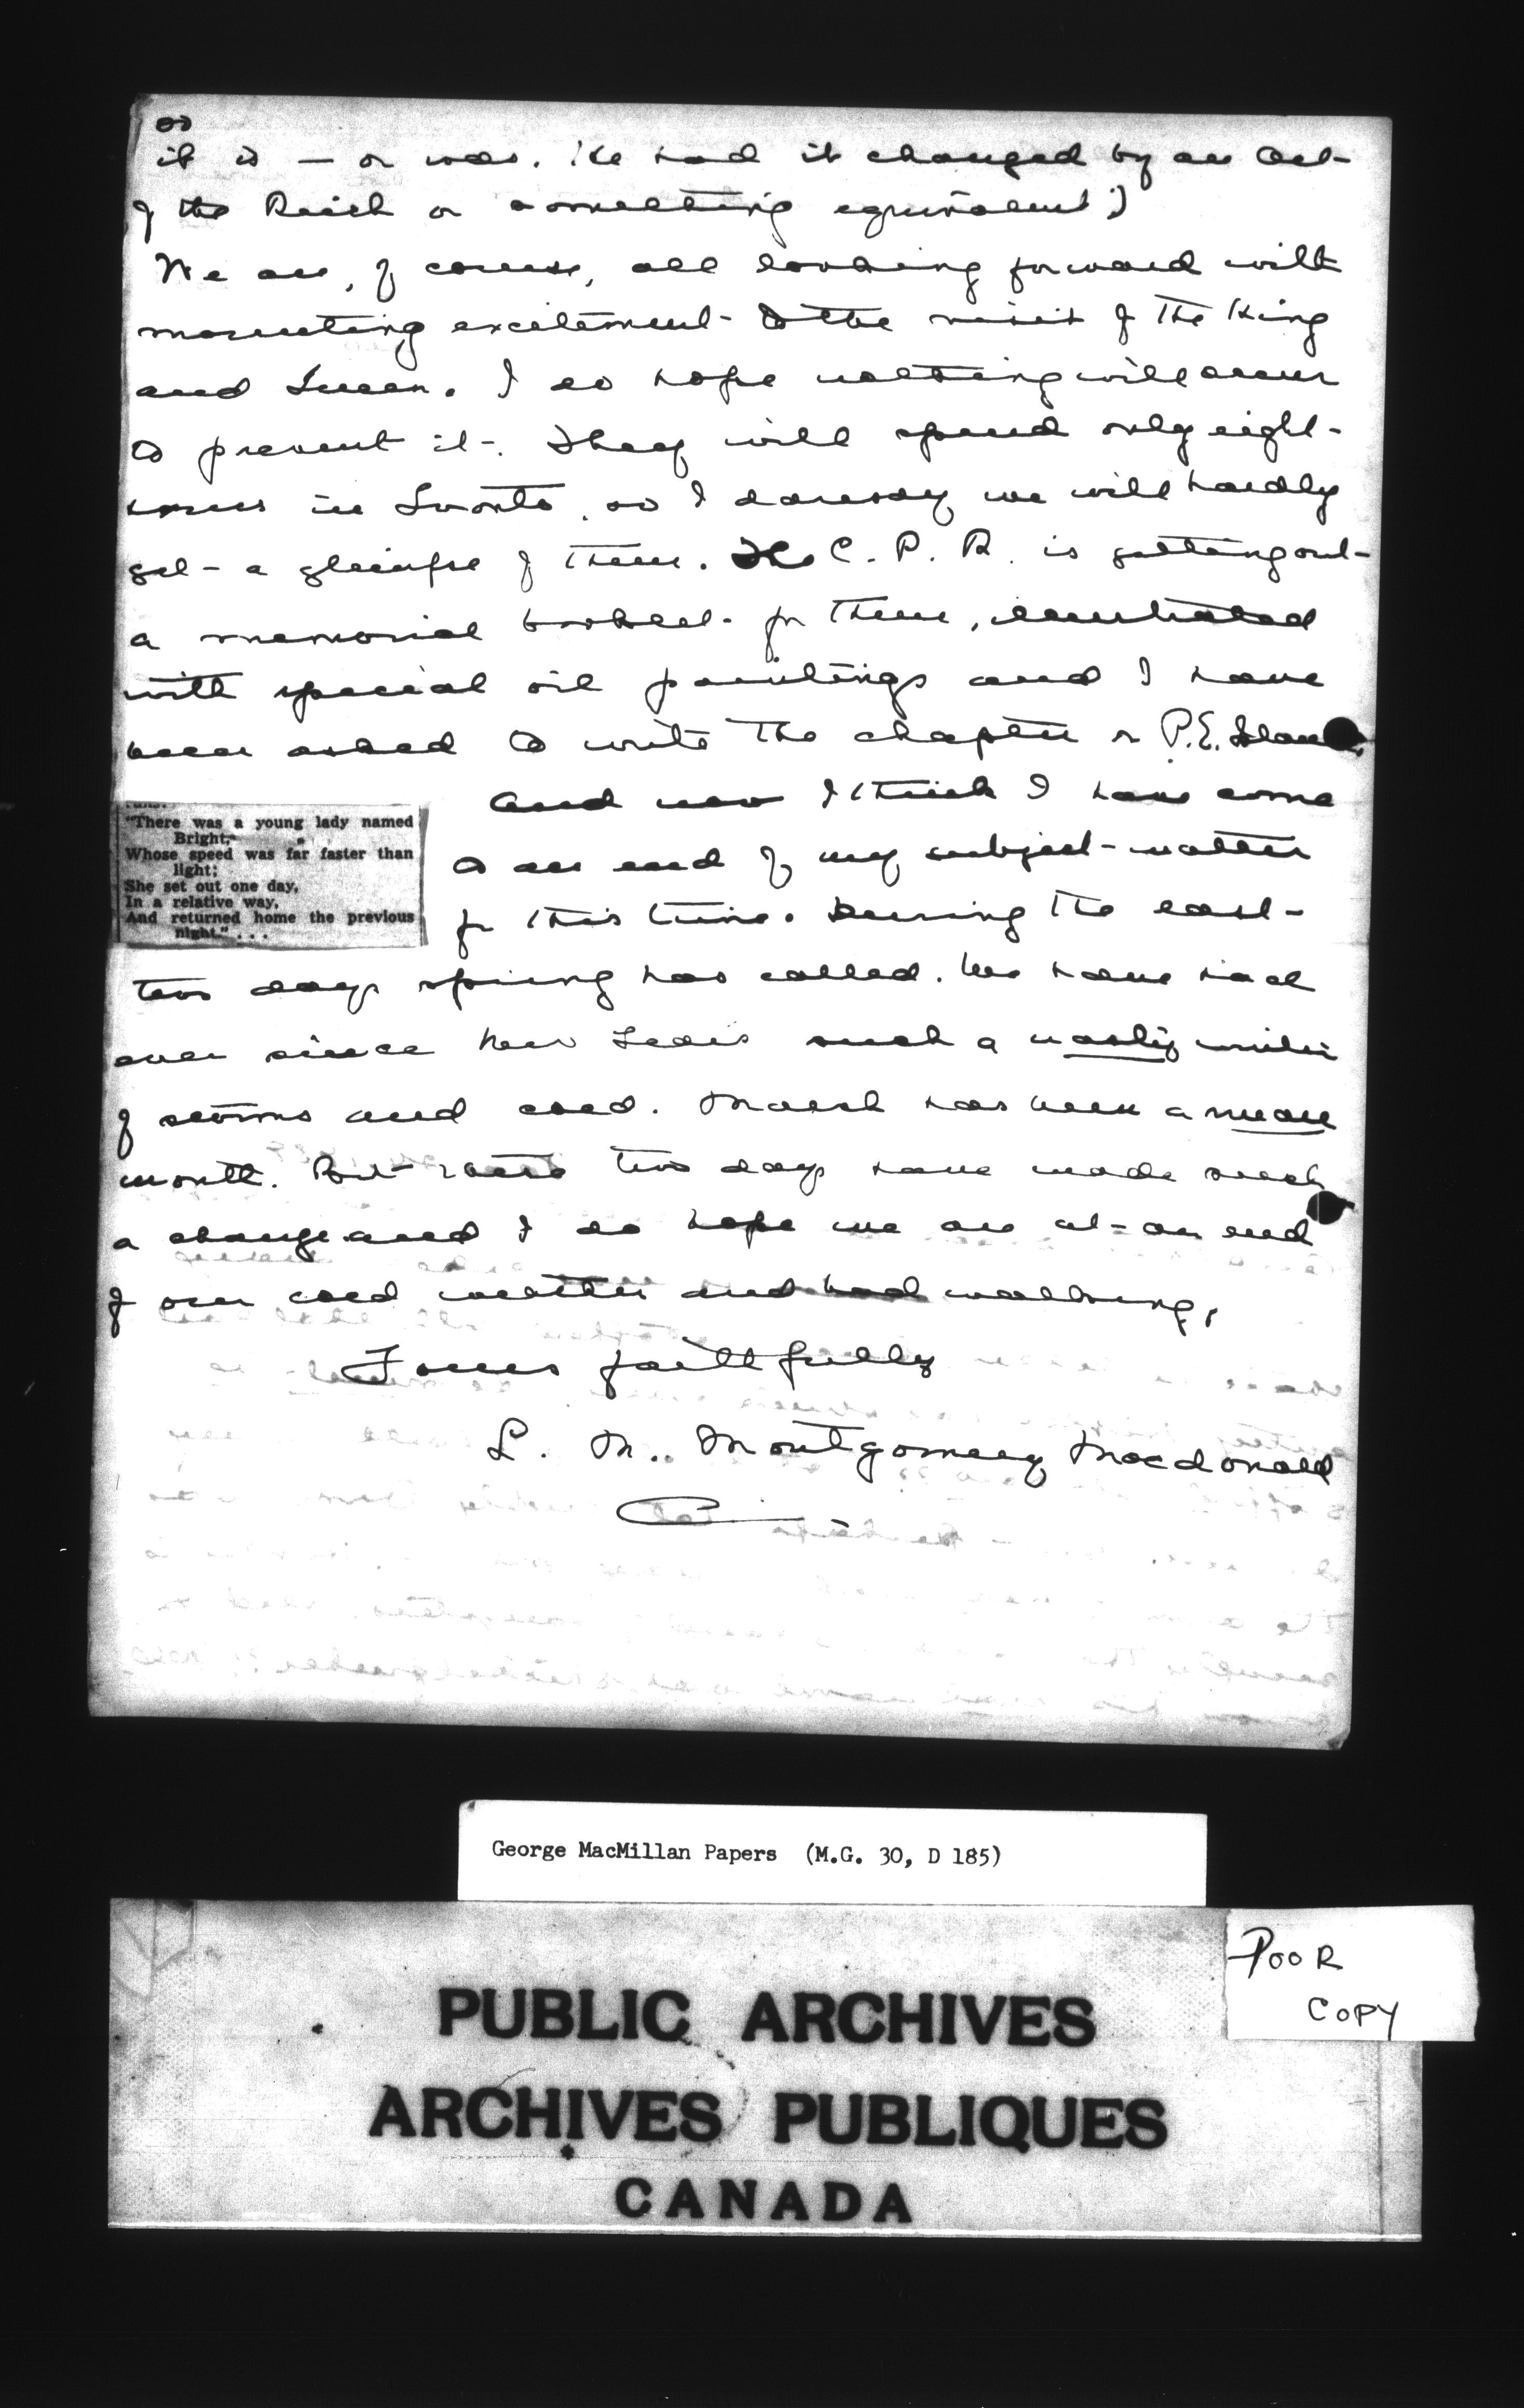 so
it is — or was. He had it changed by an Act
of the Reich or something equivalent.)
We are, of course, all looking forward with
mounting excitement to the visit of the King
and Queen. I do hope nothing will occur
to prevent it. They will spend only eight
hours in Toronto so I daresay we will hardly
get a glimpse of them. The C. P. R. is getting out
a memorial booklet for them, illustrated
with special oil paintings and I have
been asked to write the chapter on P.E. Island.
And now I think I have come
to an end of my subject-matter
for this time. During the last
"There was a young lady named
Bright,
Whose speed was far faster than
light;
She set out one day,
In a relative way,
And returned home the previous
night." . . .
two days spring has called. We have had
ever since New Year's such a nasty winter
of storms and cold. March has been a mean
month. But these two days have made such
a change and I do hope we are at an end
of our cold weather and bad walking.
Yours faithfully
L. M. Montgomery Macdonald
George MacMillan Papers (M.G. 30, D 185)
POOR
COPY
PUBLIC ARCHIVES
ARCHIVES PUBLIQUES
CANADA